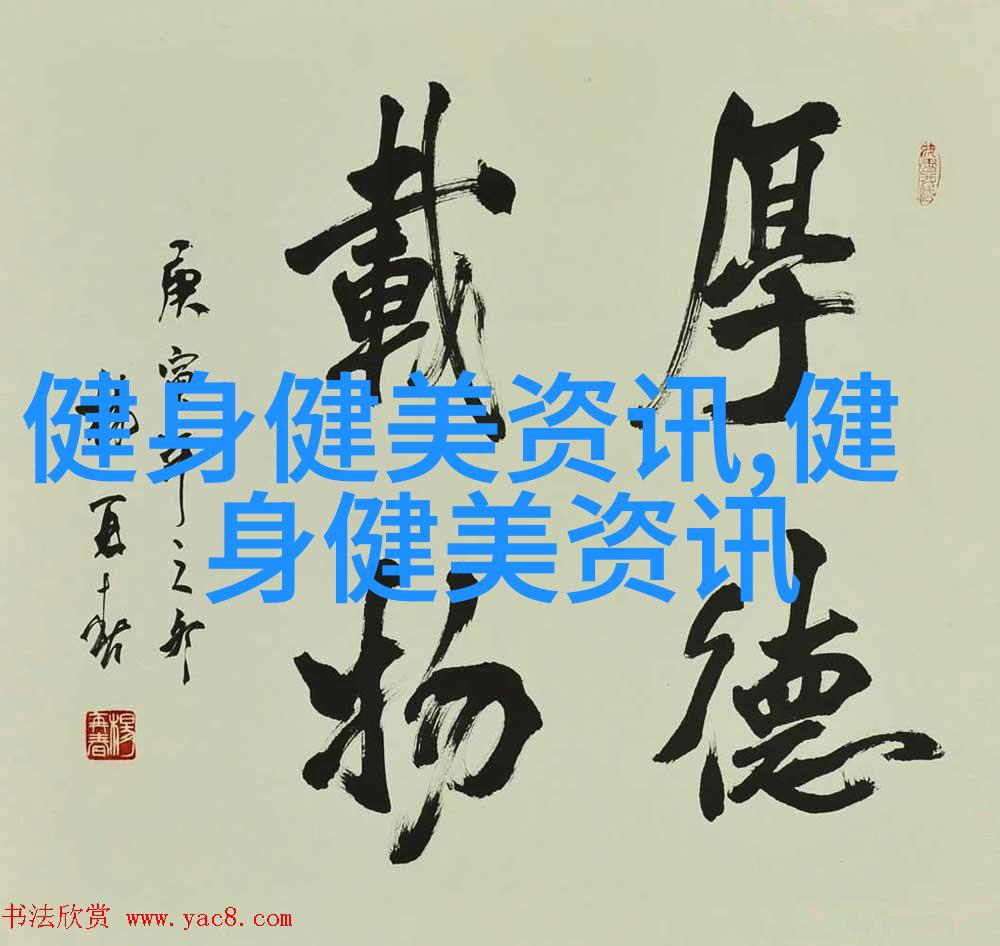 厚德
載物
庚寅年之
健身健美资讯,健
身健美资讯
楊再春
书法欣赏 www.yac8.com